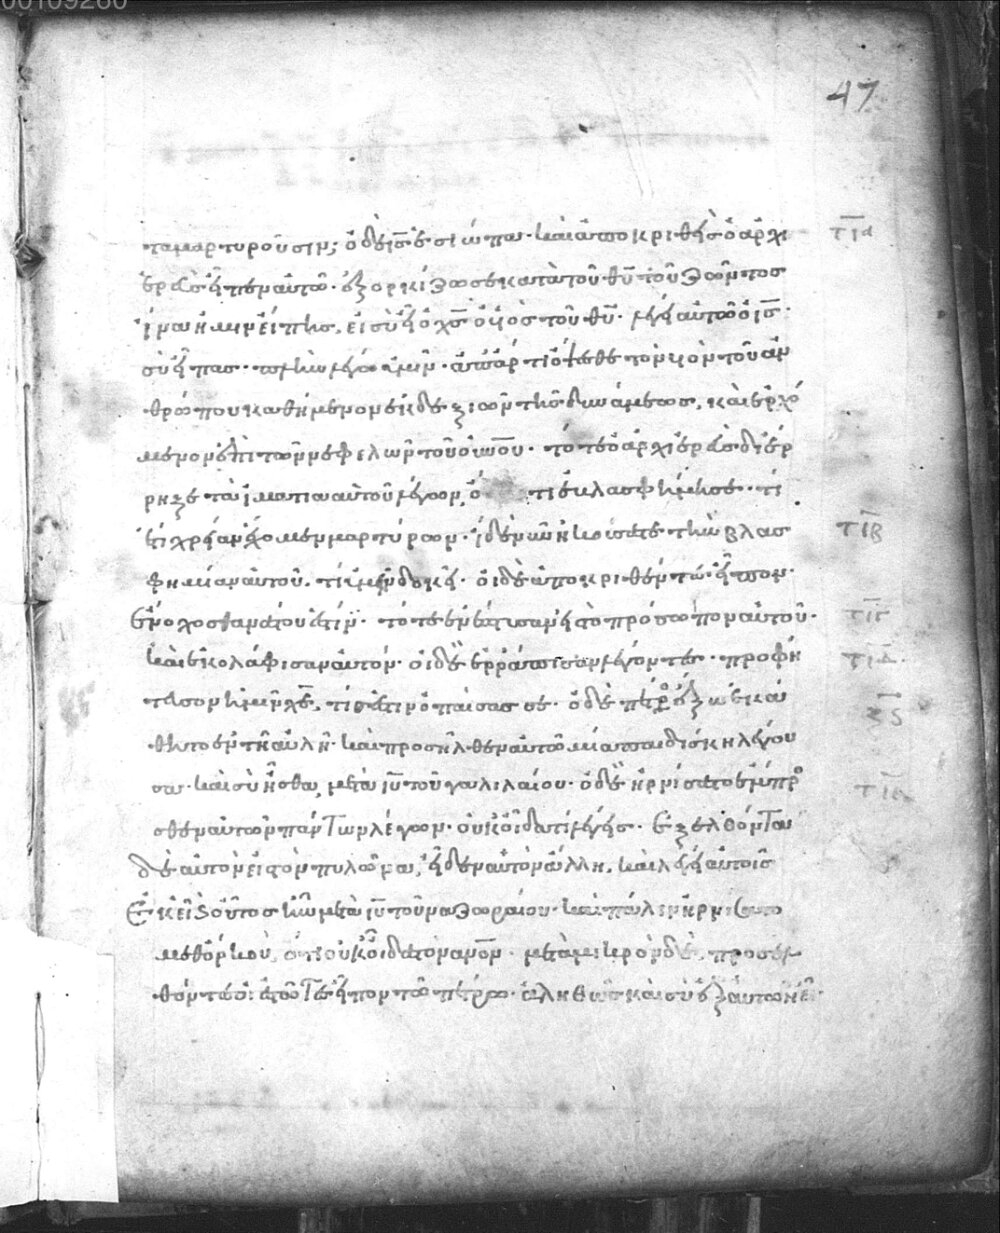 00109260
47
ταμαρτυροῦσιν; ὁ δὲ ἰς ἐσιώπα· καὶ ἀποκριθεὶς ὁ ἀρχι τια
ερεὺς εἶπεν αὐτῶ· ἐξορκίζω σε κατὰ τοῦ θυ τοῦ ζῶντος
ἵνα ἡμῖν εἴπης, εἰ σὺ εἶ ὁ χς ὁ υἱὸς τοῦ θυ· λέγει αὐτῶ ὁ ις·
σὺ εἶπας· πλὴν λέγω ὑμῖν· ἀπάρτι ὄψεσθε τὸν υἱὸν τοῦ ἀν
θρώπου καθήμενον ἐκ δεξιῶν τῆς δυνάμεως, καὶ ἐρχό
μενον ἐπὶ τῶν νεφελῶν τοῦ οὐνου· τότε ὁ ἀρχιερεὺς διέρ
ρηξε τὰ ἱμάτια αὐτοῦ λέγων, ὅτι ἐβλασφήμησε· τί
ἔτι χρείαν ἔχομεν μαρτύρων· ἴδε νῦν ἠκούσατε τὴν βλασ τιβ
φημίαν αὐτοῦ. τί ὑμῖν δοκεῖ· οἱ δὲ ἀποκριθέντες εἶπον·
Ἔνοχος θανάτου ἐστίν· τότε ἐνέπτυσαν εἰς τὸ πρόσωπον αὐτοῦ· τιγ
καὶ ἐκολάφισαν αὐτόν· οἱ δὲ ἐρράπισαν λέγοντες· προφή τιδ
τευσον ἡμῖν χε, τίς ἐστιν ὁ παίσας σε· ὁ δὲ πέτρος ἔξω ἐκά ξς
θητο ἐν τῆ αὐλῆ· καὶ προσῆλθεν αὐτῶ μία παιδίσκη λέγου
σα· καὶ σὺ ἦσθα μετὰ ιυ τοῦ γαλιλαίου· ὁ δὲ ἠρνήσατο ἔμπρο τιε
σθεν αὐτῶν πάντων λέγων· οὐκ οἶδα τί λέγεις· Ἐξελθόντα
δὲ αὐτὸν εἰς τὸν πυλῶνα, εἶδεν αὐτὸν ἄλλη, καὶ λέγει αὐτοῖς
Ἐκεῖ καὶ οὗτος ἦν μετὰ ιυ τοῦ ναζωραίου· καὶ πάλιν ἠρνήσατο
μεθ ὅρκου, ὅτι οὐκ οἶδα τὸν ἀνον· μετὰ μικρὸν δὲ, προσελ
θόντες οἱ ἑστῶτες εἶπον τῶ πέτρω· ἀληθῶς καὶ σὺ ἐξ αὐτῶν εἶ·